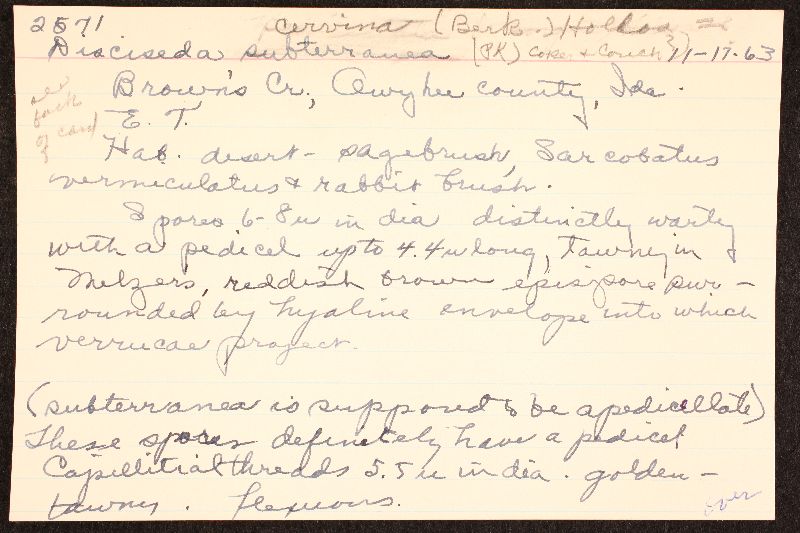 2571 cervina (Berk.) Hollos =
Disciseda subterranea (PK) Coker & Couch 11-17-63
see
back
of card
Brown's Cr., Owyhee county, Ida.
E. T.
Hab. desert - sagebrush, Sarcobatus
vermiculatus & rabbit brush.
Spores 6-8u in dia distinctly warty
with a pedicel up to 4.4u long, tawney in
Melzers, reddish brown epispore sur-
rounded by hyaline envelope into which
verrucae project.
(subterranea is supposed to be apedicellate)
These spores definitely have a pedicel
Capillitial threads 5.5u in dia. golden-
tawny. flexuous.
over